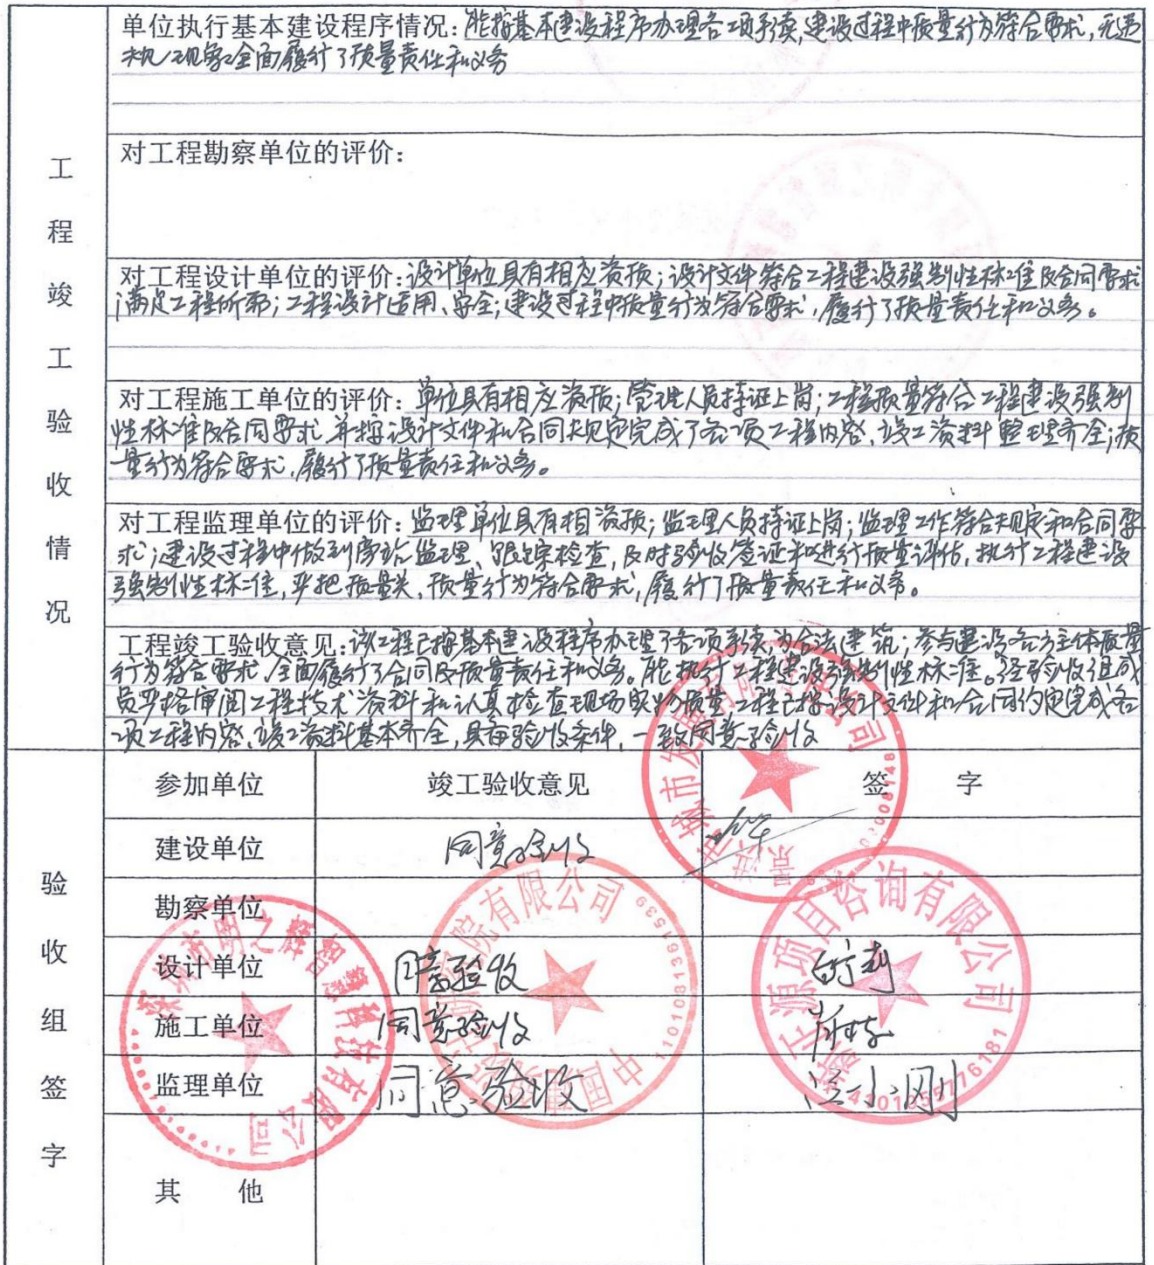 单位执行基本建设程序情况：能按基本建设程序办理各项手续，建设过程中质量行为符合要求，无违
规现象全面履行了质量责任和义务
工程竣工验收情况
对工程勘察单位的评价：
对工程设计单位的评价：设计单位具有相应资质；设计文件符合工程建设强制性标准及合同要求
；满足工程所需；工程设计适用、安全；建设过程中质量行为符合要求，履行了质量责任和义务。
对工程施工单位的评价：单位具有相应资质；管理人员持证上岗；工程质量符合工程建设强制
性标准及合同要求，并按设计文件和合同规定完成了各项工程内容、竣工资料整理齐全；质
量行为符合要求，履行了质量责任和义务。
对工程监理单位的评价：监理单位具有相资质；监理人员持证上岗；监理工作符合规定和合同要
求；建设过程中做到旁站监理、跟踪检查，及时验收签证和进行质量评估，执行工程建设
强制性标准，严把质量关，质量行为符合要求，履行了质量责任和义务。
工程竣工验收意见：该工程已按基本建设程序办理了各项手续，为合法建筑；参与建设各方主体质量
行为符合要求，全面履行了合同及质量责任和义务。能执行工程建设强制性标准。经验收组成
员严格审阅工程技术资料和认真检查现场实物质量，工程已按设计文件和合同约定完成各
项工程内容，竣工资料基本齐全，具备验收条件，一致同意验收
验收组签字
参加单位 竣工验收意见 签 字
建设单位 同意验收
勘察单位
设计单位 同意验收
施工单位 同意验收
监理单位 同意验收 汪小刚
其 他
景洪市城市发展
有限公司
深圳市明之辉智慧科技有限公司
中国建筑设计研究院有限公司
1101081361539
正源项目咨询有限公司